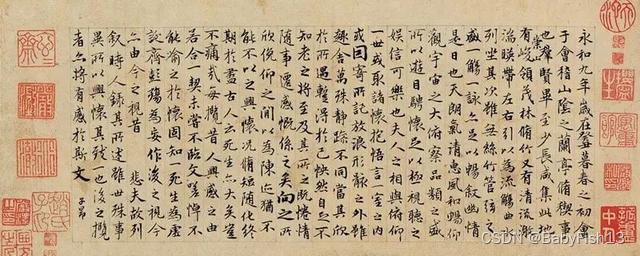 永和九年歲在癸丑暮春之初會
于會稽山陰之蘭亭脩稧事
也羣賢畢至少長咸集此地
有崇山峻領茂林脩竹又有清流激
湍暎帶左右引以為流觴曲水
列坐其次雖無絲竹管弦之
盛一觴一詠亦足以暢叙幽情
是日也天朗氣清惠風和暢仰
觀宇宙之大俯察品類之盛
所以遊目騁懷足以極視聽之
娛信可樂也夫人之相與俯仰
一世或取諸懷抱悟言一室之內
或因寄所託放浪形骸之外雖
趣舍萬殊靜躁不同當其欣
於所遇蹔得於己怏然自足不
知老之將至及其所之既惓情
隨事遷感慨係之矣向之所
欣俛仰之閒以為陳迹猶不
能不以之興懷況脩短隨化終
期於盡古人云死生亦大矣豈
不痛哉每攬昔人興感之由
若合一契未嘗不臨文嗟悼不
能喻之於懷固知一死生為虛
誕齊彭殤為妄作後之視今
亦由今之視昔 悲夫故列
叙時人錄其所述雖世殊事
異所以興懷其致一也後之攬
者亦將有感於斯文
子昂
CSDN @BabyFish13